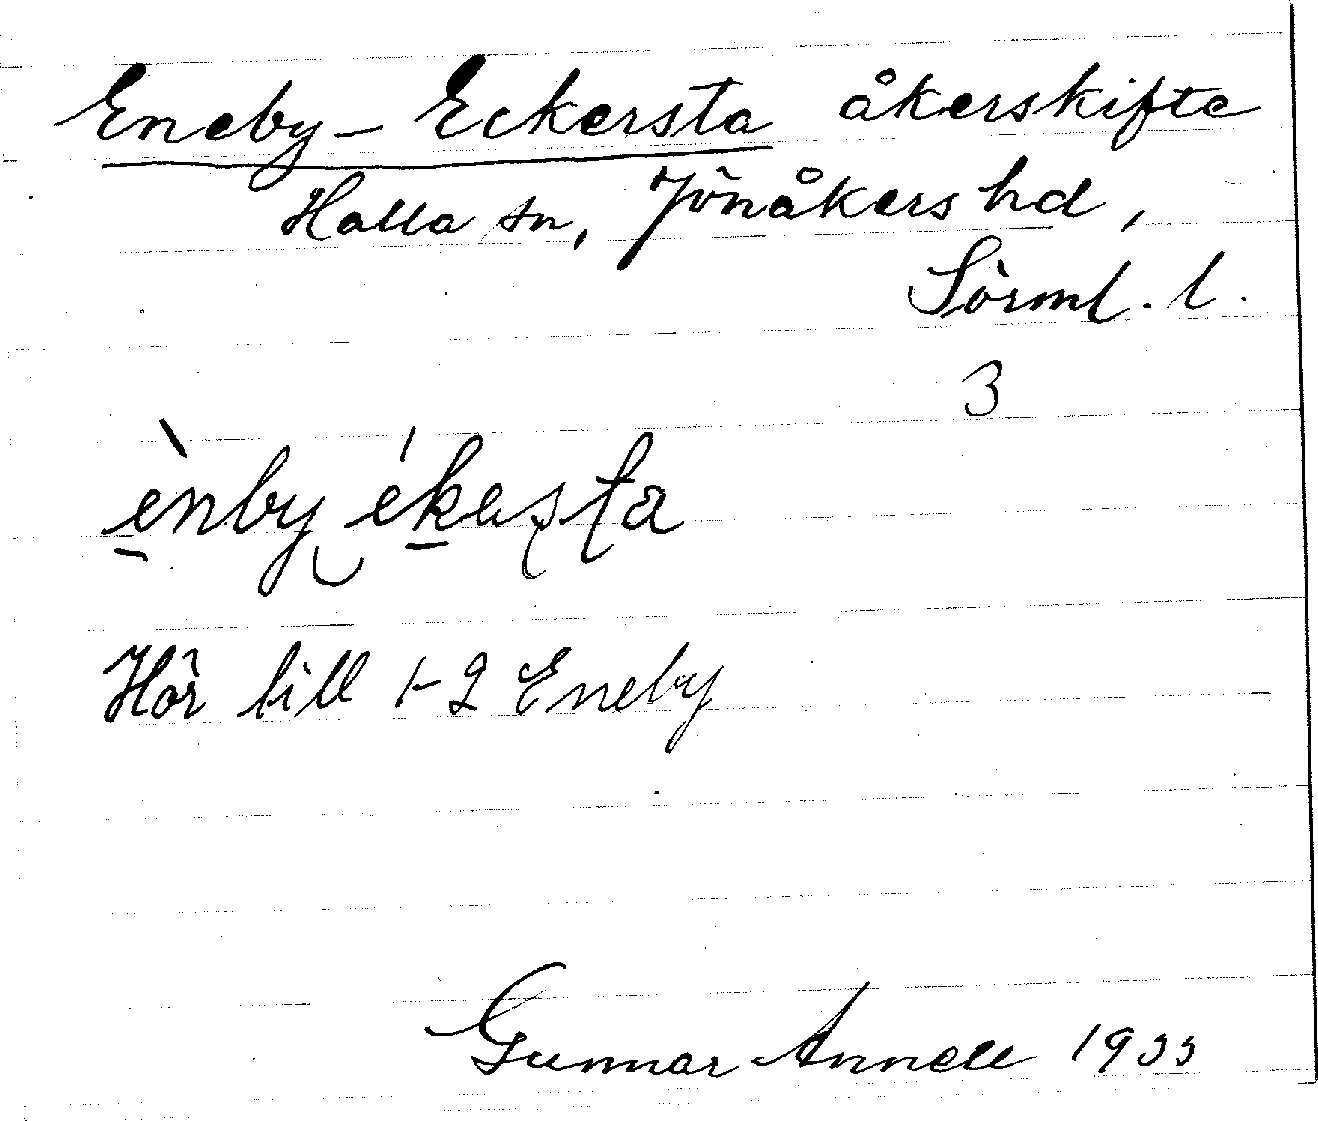 Eneby-Eckersta åkerskifte
Halla sn, Jönåkers hd,
Sörml. l.
3
ènby ékasta
Hör till 1-2 Eneby
Gunnar Annell 1933